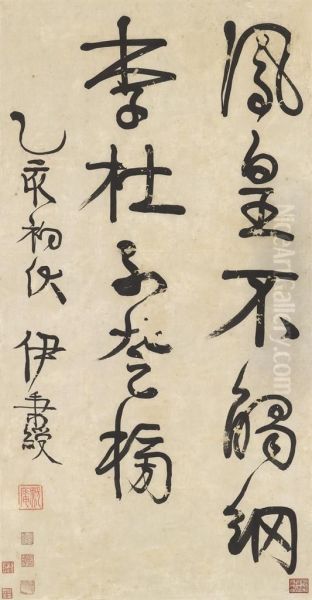 鳳皇不觸網
李杜不登榜
乙亥初伏 伊秉綬
NiceArtGallery.com